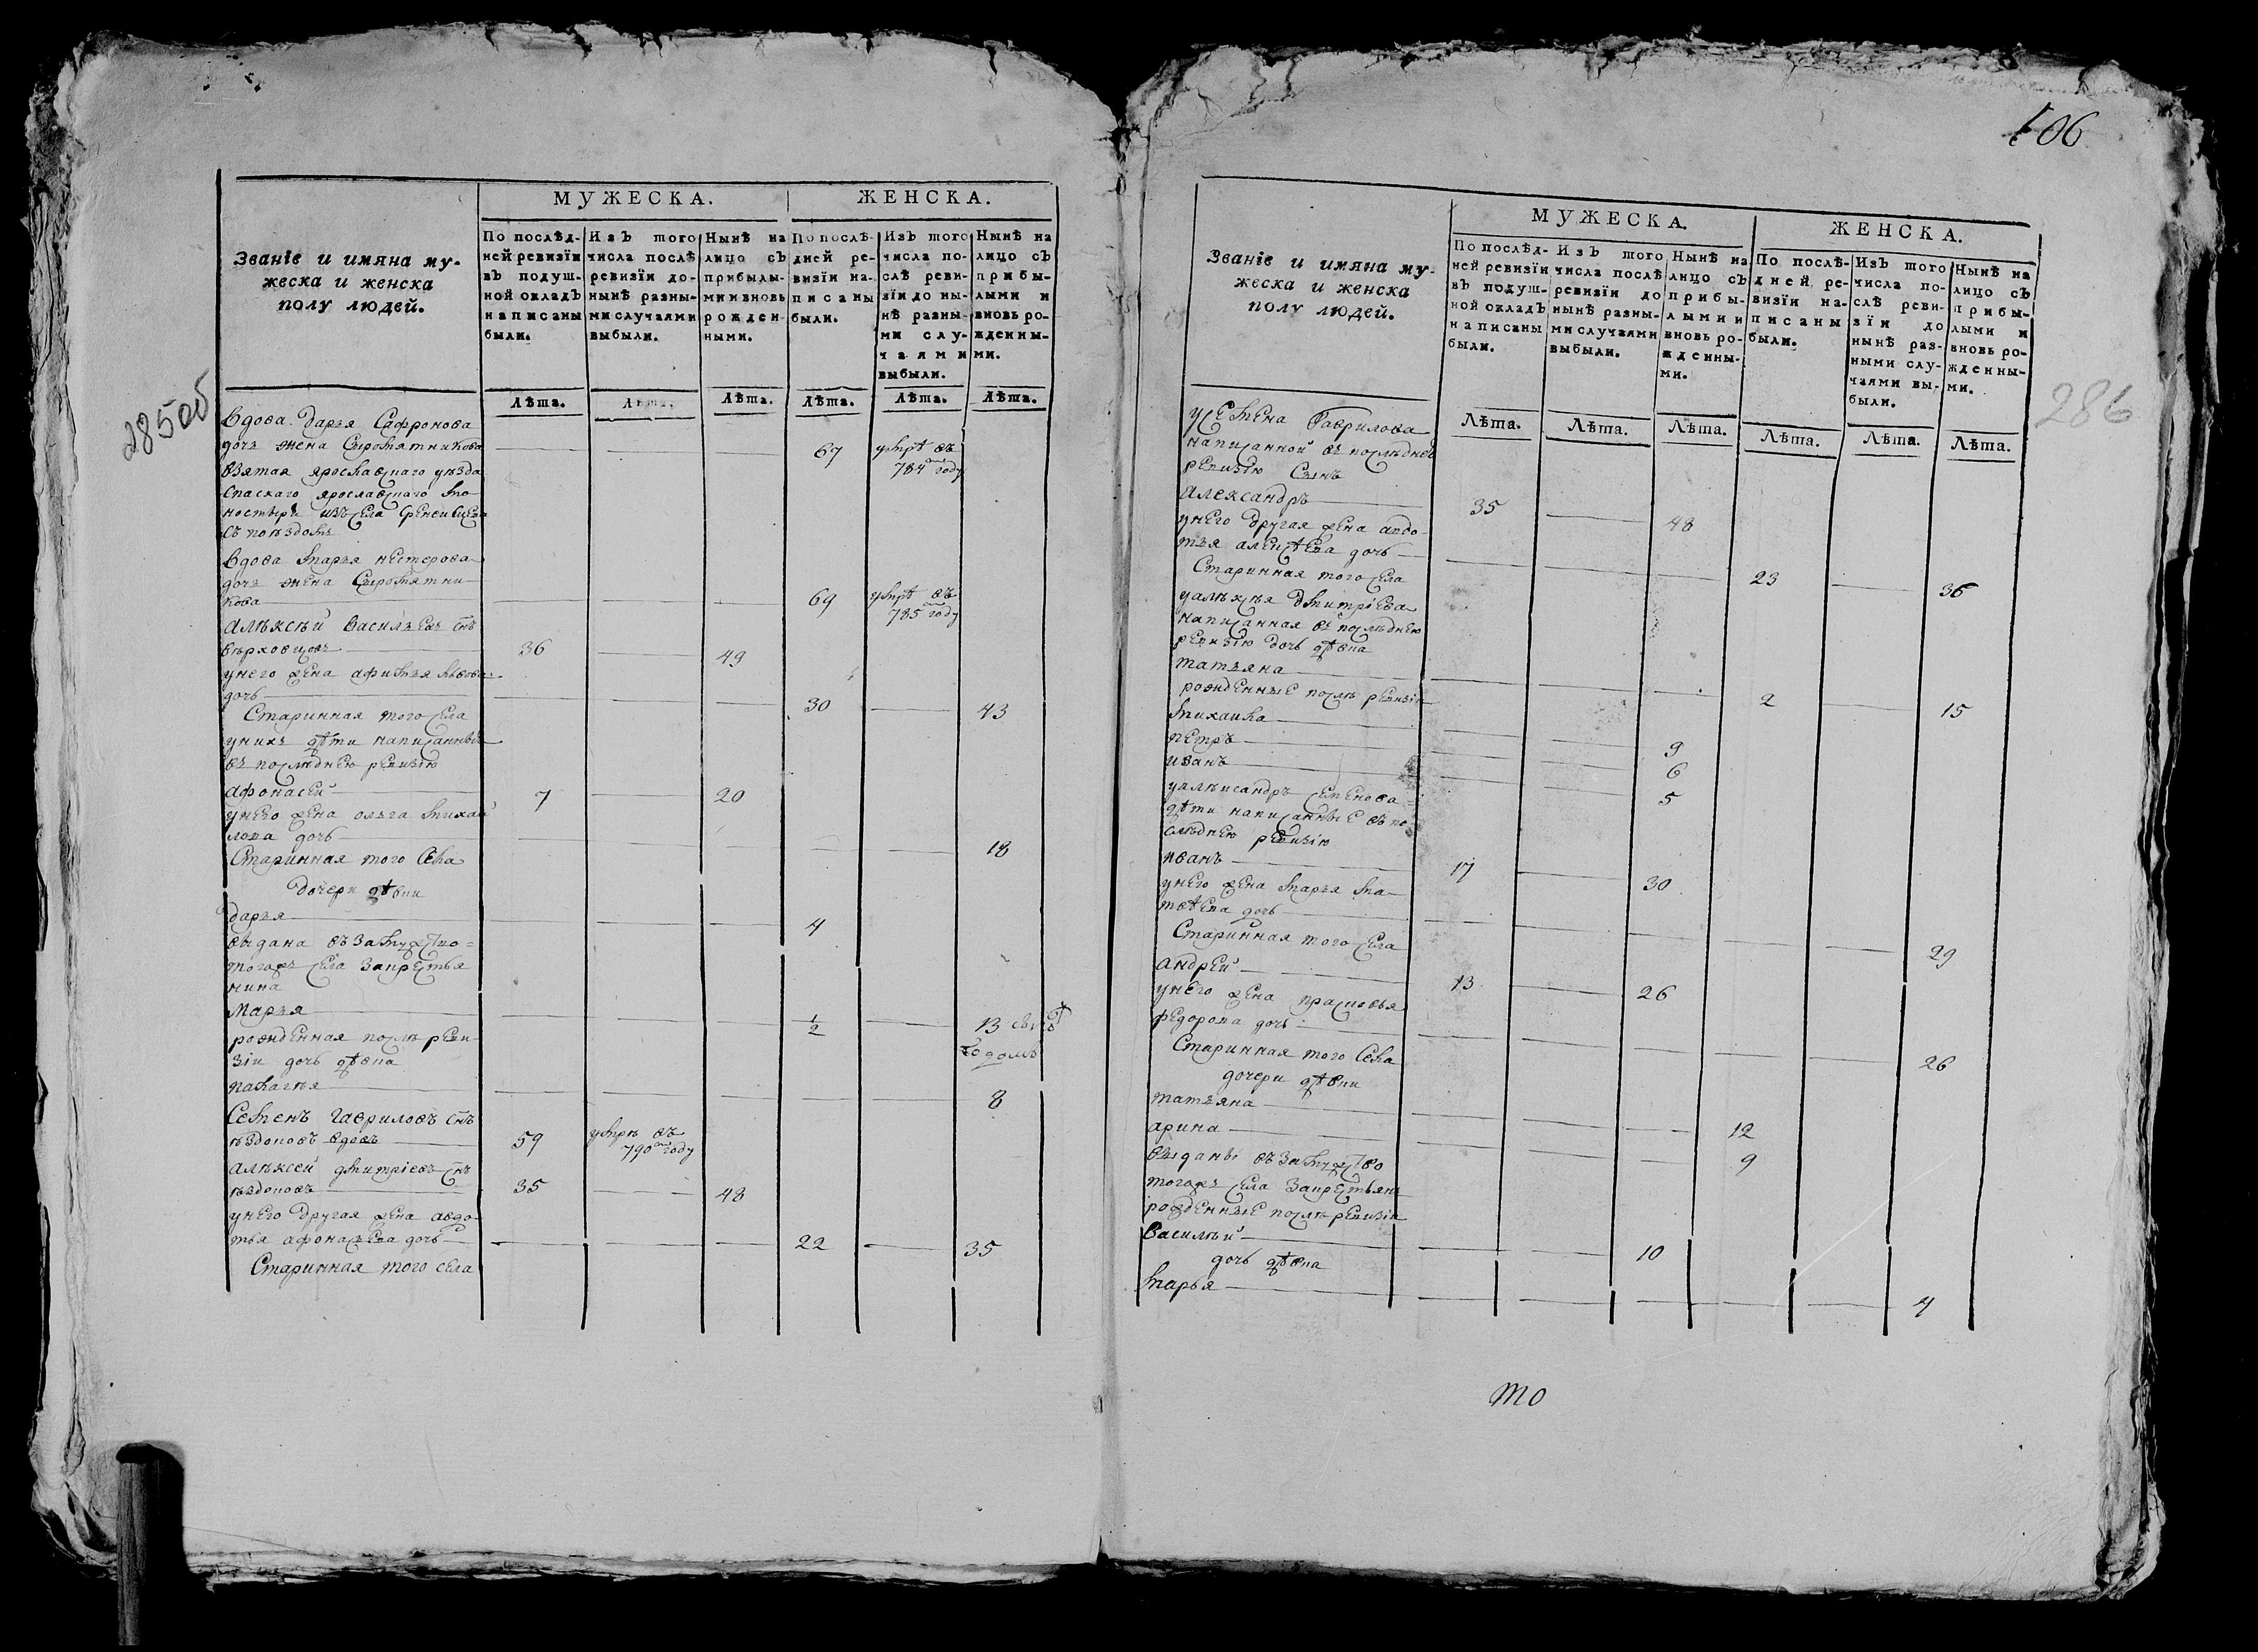 285об
Званіе и имяна му-
жеска и женска
полу людей.
МУЖЕСКА.
ЖЕНСКА.
По послѣд-
ней ревизіи
въ подуш-
ной окладъ
написаны
были.
Изъ того
числа послѣ
ревизіи до-
нынѣ разны-
ми случаями
выбыли.
Нынѣ на
лицо съ
прибылы-
ми и вновь
рожден-
ными.
По послѣ-
дней ре-
визіи на-
писаны
были.
Изъ того
числа по-
слѣ реви-
зіи до ны-
нѣ разны-
ми слу-
чаями
выбыли.
Нынѣ на
лицо съ
прибы-
лыми и
вновь ро-
жденны-
ми.
Лѣта. Лѣта. Лѣта. Лѣта. Лѣта. Лѣта.
Вдова Дарья Сафронова
дочь жена Сыромятникова 67 умрѣ въ
взятая ярославскаго уѣзда 784 году
спаскаго ярославскаго мо
настыря изъ села
Вдова марья нестерова
дочь жена Сыромятни
кова 69 умрѣ въ
785 году
Алѣксѣй Васильевъ снъ
верховцовъ 36 49
унего жена афимья львова
дочь 30 43
Старинная того села
унихъ дѣти написанныя
въ последнею ревизію
афонасей 7 20
унего жена ольга михай
лова дочь 18
Старинная того села
дочери дѣвки
дарья 4
выдана въ замужство
тогожъ села закрестья
нина
Марья 1/2 13
рожденная послѣ реви
зіи дочь дѣвка годомъ
палагѣя 8
Семенъ Гавриловъ снъ
ѣздоковъ вдовъ 59 умрѣ въ
790 году
алѣксей дмитріевъ снъ
ѣздоковъ 35 48
унего другая жена авдо
тья афонасьева дочь 22 35
Старинная того села
106
286
Званіе и имяна му-
жеска и женска
полу людей.
МУЖЕСКА.
ЖЕНСКА.
По послѣд-
ней ревизіи
въ подуш-
ной окладъ
написаны
были.
Изъ того
числа послѣ
ревизіи до
нынѣ разны-
ми случаями
выбыли.
Нынѣ на
лицо съ
прибы-
лыми и
вновь ро-
жденны-
ми.
По послѣ-
дней ре-
визіи на-
писаны
были.
Изъ того
числа по-
слѣ реви-
зіи до
нынѣ раз-
ными слу-
чаями вы-
были.
Нынѣ на
лицо съ
прибы-
лыми и
вновь ро-
жденны-
ми.
Лѣта. Лѣта. Лѣта. Лѣта. Лѣта. Лѣта.
усемена Гаврилова
написанной въ последнею
ревизію Сынъ
александръ 35 48
унего другая жена авдо
тья алексѣева дочь 23 36
Старинная того села
уалѣксѣя дмитріева
написанная въ последнею
ревизію дочь дѣвка
татьяна 2 15
рожденные послѣ ревизіи
михаила 9
петръ 6
иванъ 5
уалѣксандръ семенова
дѣти написанные въ по
следнею ревизію
иванъ 17 30
унего жена марья ма
твѣева дочь 29
Старинная того села
андрей 13 26
унего жена прасковья
федорова дочь 26
Старинная того села
дочери дѣвки
татьяна 12
арина 9
выданы въ замужство
тогожъ села закрестьянъ
рожденные послѣ ревизіи
Василѣй 10
дочь дѣвка
марья 4
то